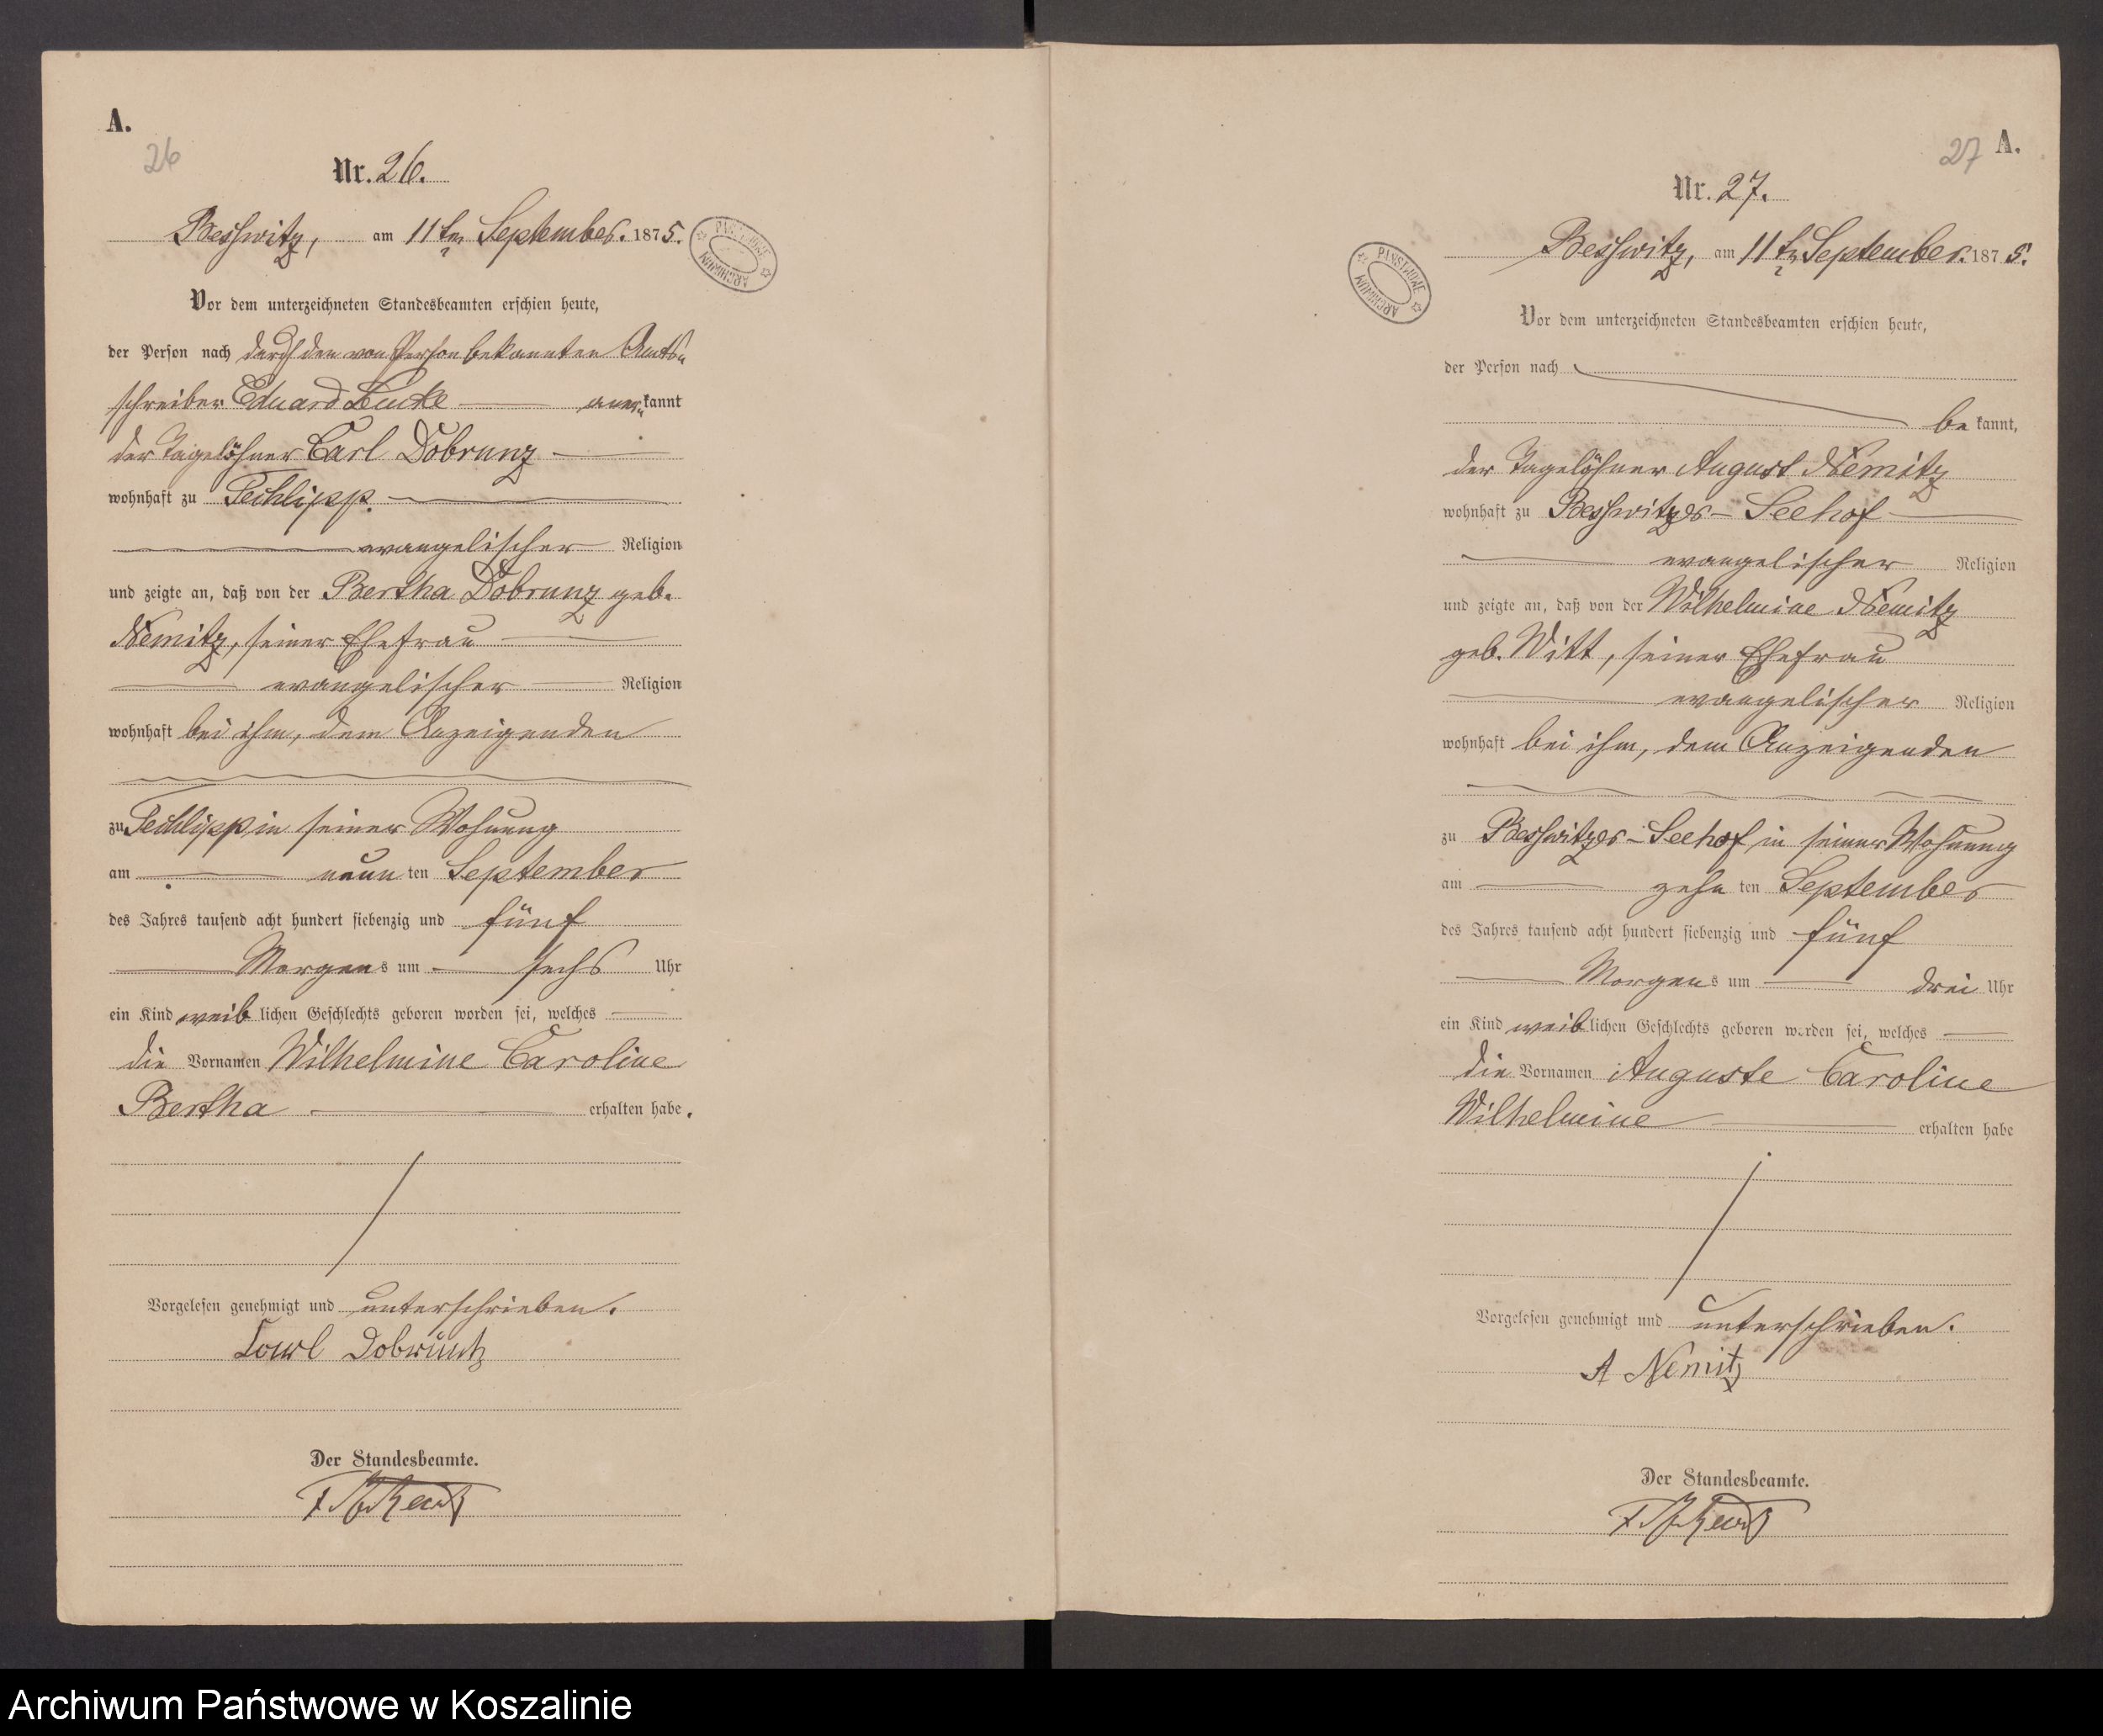 A.
26
Nr. 26.
Besswitz, am 11ten September. 1875.
PANSTWOWE ARCHIWUM
Vor dem unterzeichneten Standesbeamten erschien heute,
der Person nach durch den von Person bekannten Amts-
schreiber Eduard aner-kannt
der Tagelöhner Carl Dobrunz
wohnhaft zu Techlipp.
evangelischer Religion
und zeigte an, daß von der Bertha Dobrunz geb.
Nemitz, seiner Ehefrau
evangelischer Religion
wohnhaft bei ihm, dem Anzeigenden
zu Techlipp in seiner Wohnung
am neun ten September
des Jahres tausend acht hundert siebenzig und fünf
Morgens um sechs Uhr
ein Kind weiblichen Geschlechts geboren worden sei, welches
die Vornamen Wilhelmine Caroline
Bertha erhalten habe.
Vorgelesen genehmigt und unterschrieben.
Carl Dobruntz
Der Standesbeamte.
27
A.
Nr. 27.
Besswitz, am 11ten September. 1875.
PANSTWOWE ARCHIWUM
Vor dem unterzeichneten Standesbeamten erschien heute,
der Person nach
bekannt,
der Tagelöhner August Nemitz
wohnhaft zu Besswitzer-Seehof
evangelischer Religion
und zeigte an, daß von der Wilhelmine Nemitz
geb. Witt, seiner Ehefrau
evangelischer Religion
wohnhaft bei ihm, dem Anzeigenden
zu Besswitzer-Seehof in seiner Wohnung
am zehn ten September
des Jahres tausend acht hundert siebenzig und fünf
Morgens um drei Uhr
ein Kind weiblichen Geschlechts geboren worden sei, welches
die Vornamen Auguste Caroline
Wilhelmine erhalten habe
Vorgelesen genehmigt und unterschrieben.
A Nemitz
Der Standesbeamte.
Archiwum Państwowe w Koszalinie